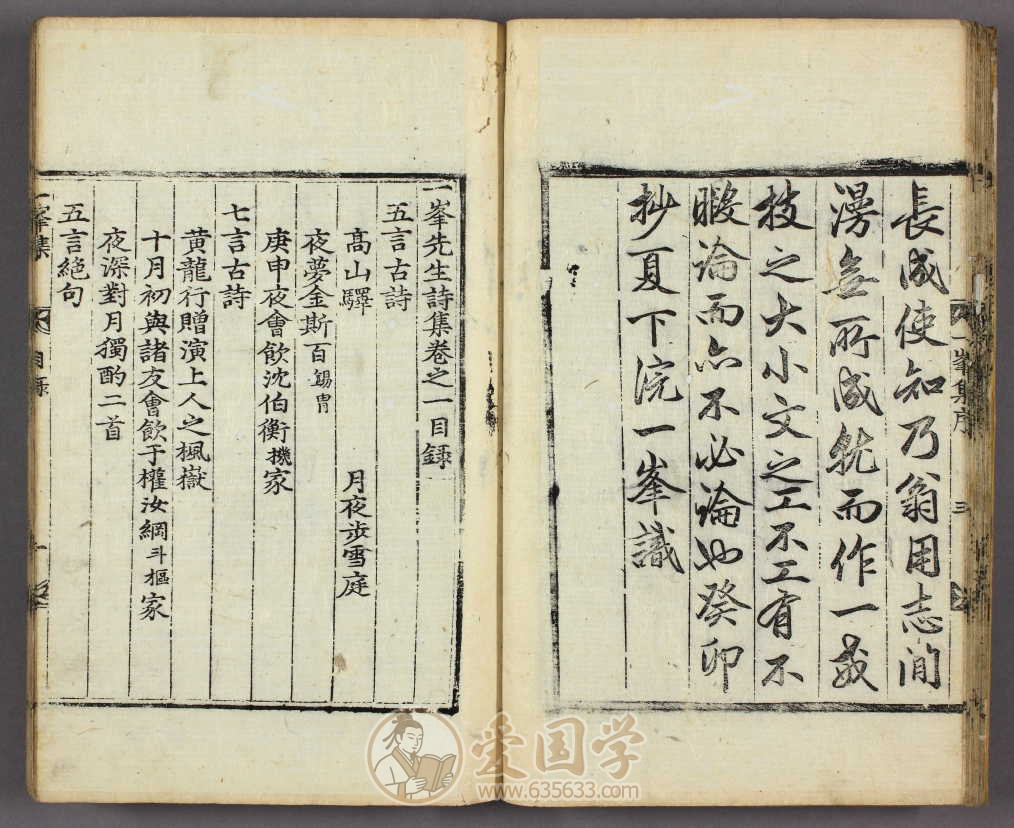 長成使知乃翁用志淍
漫無所成就而作一或
技之大小文之工不工有不
暇論而亦不必論也癸卯
抄夏下浣一峯識
一峯集序 三
一峯先生詩集卷之一目錄
五言古詩
高山驛 月夜步雪庭
夜夢金斯百錫胄
庚申夜會飲沈伯衡機家
七言古詩
黄龍行贈演上人之楓嶽
十月初與諸友會飲于權汝綱斗樞家
夜深對月獨酌二首
五言絕句
一峯集 目錄 一
爱国学
www.635633.com